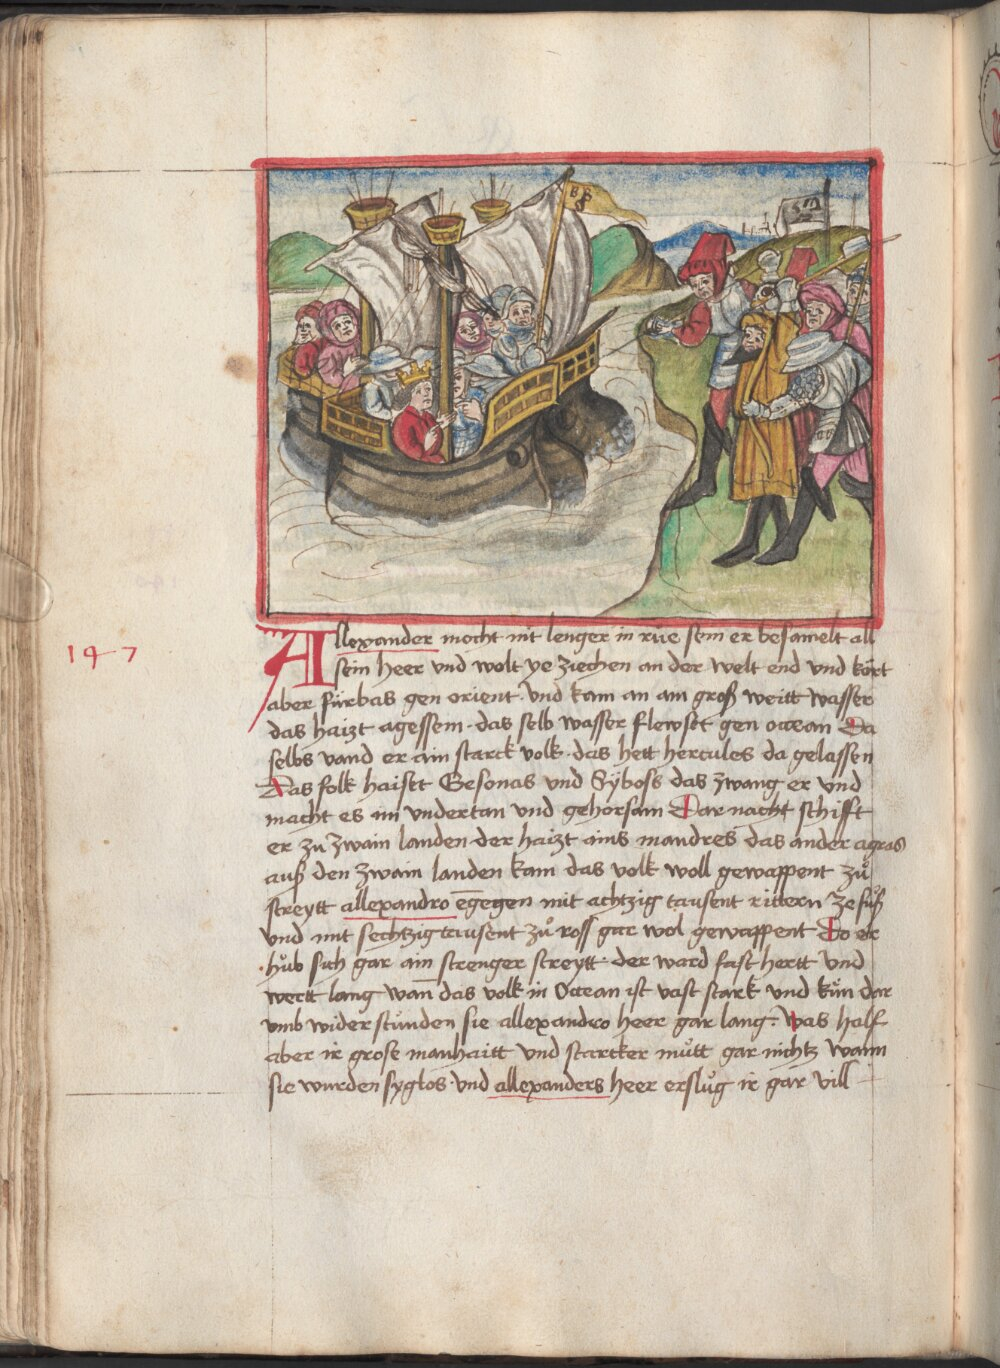 Allexander mocht nit lenger in rue sein er besamelt all
sein heer und wolt ye ziechen an der welt end und kört
aber fürbas gen orient · und kam an ain groß weitt wasser
das haizt agessem · das selb wasser flewset gen occean Da
selbs vand er ain starck volk · das hett hercules da gelassen
Das folk haiset Gesonas und Syboss das zwang er und
macht es im undertan und gehorsam Dar nacht schifft
er zu zwain landen der haizt ains mandres das ander agras
auß den zwain landen kam das volk woll gewappent zů
streytt allexandro engegen mit achtzig tausent rittern ze fůß
und mit sechtzig tausent zů ross gar wol gewappent Do er
hůb sich gar ain strenger streytt · der ward fast hertt und
wertt lang wan̄ das volk in Occean ist vast stark und kün dar
umb widerstůnden sie allexandro heer gar lang · was half
aber ir grose manhaitt und starcker můtt gar nichtz wann
sie wurden syglos · und allexanders heer erslůg ir gar vill
147